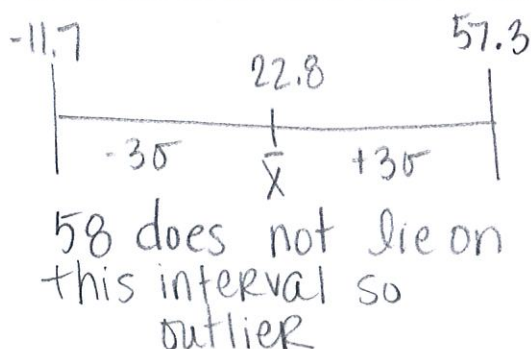 -11.7 22.8 57.3
-3σ x̄ +3σ
58 does not lie on
this interval so
outlier